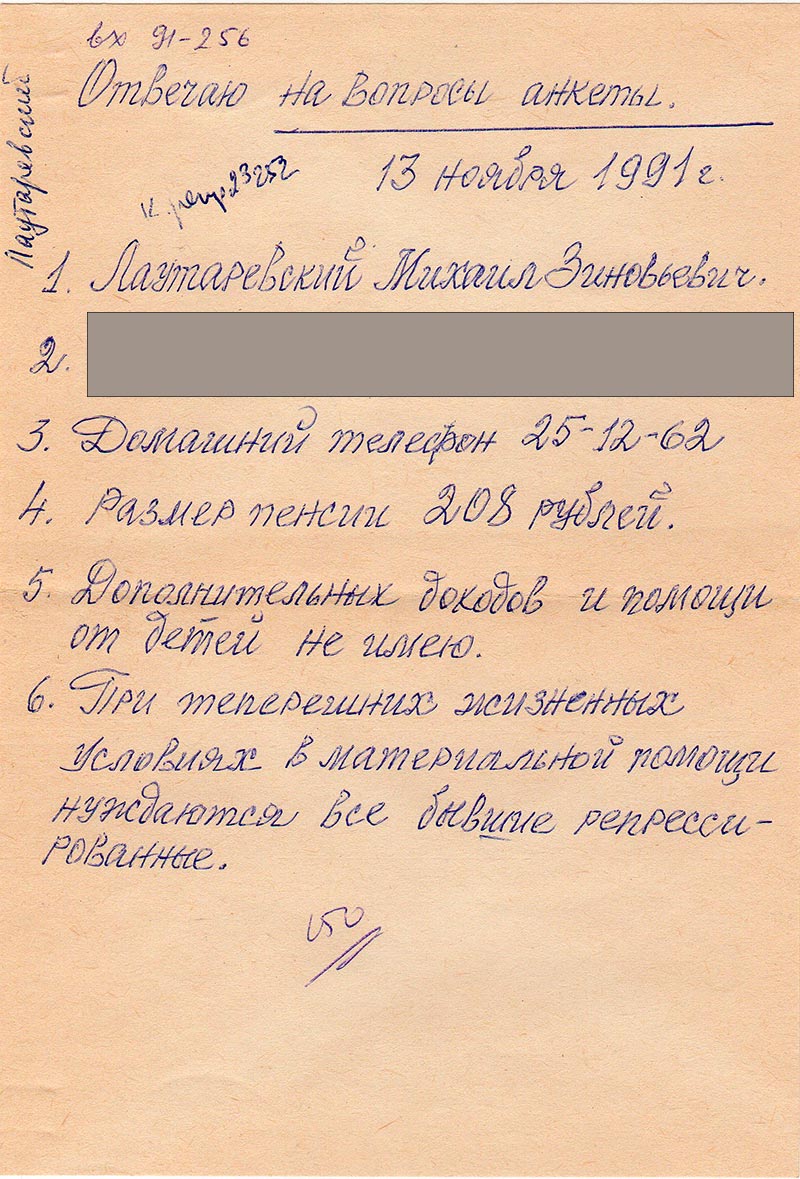 вх 91-256
Отвечаю на вопросы анкеты.
Лаутаревский
13 ноября 1991 г.
к 23252
1. Лаутаревский Михаил Зиновьевич.
2.
3. Домашний телефон 25-12-62
4. Размер пенсии 208 рублей.
5. Дополнительных доходов и помощи
от детей не имею.
6. При теперешних жизненных
условиях в материальной помощи
нуждаются все бывшие репресси-
рованные.